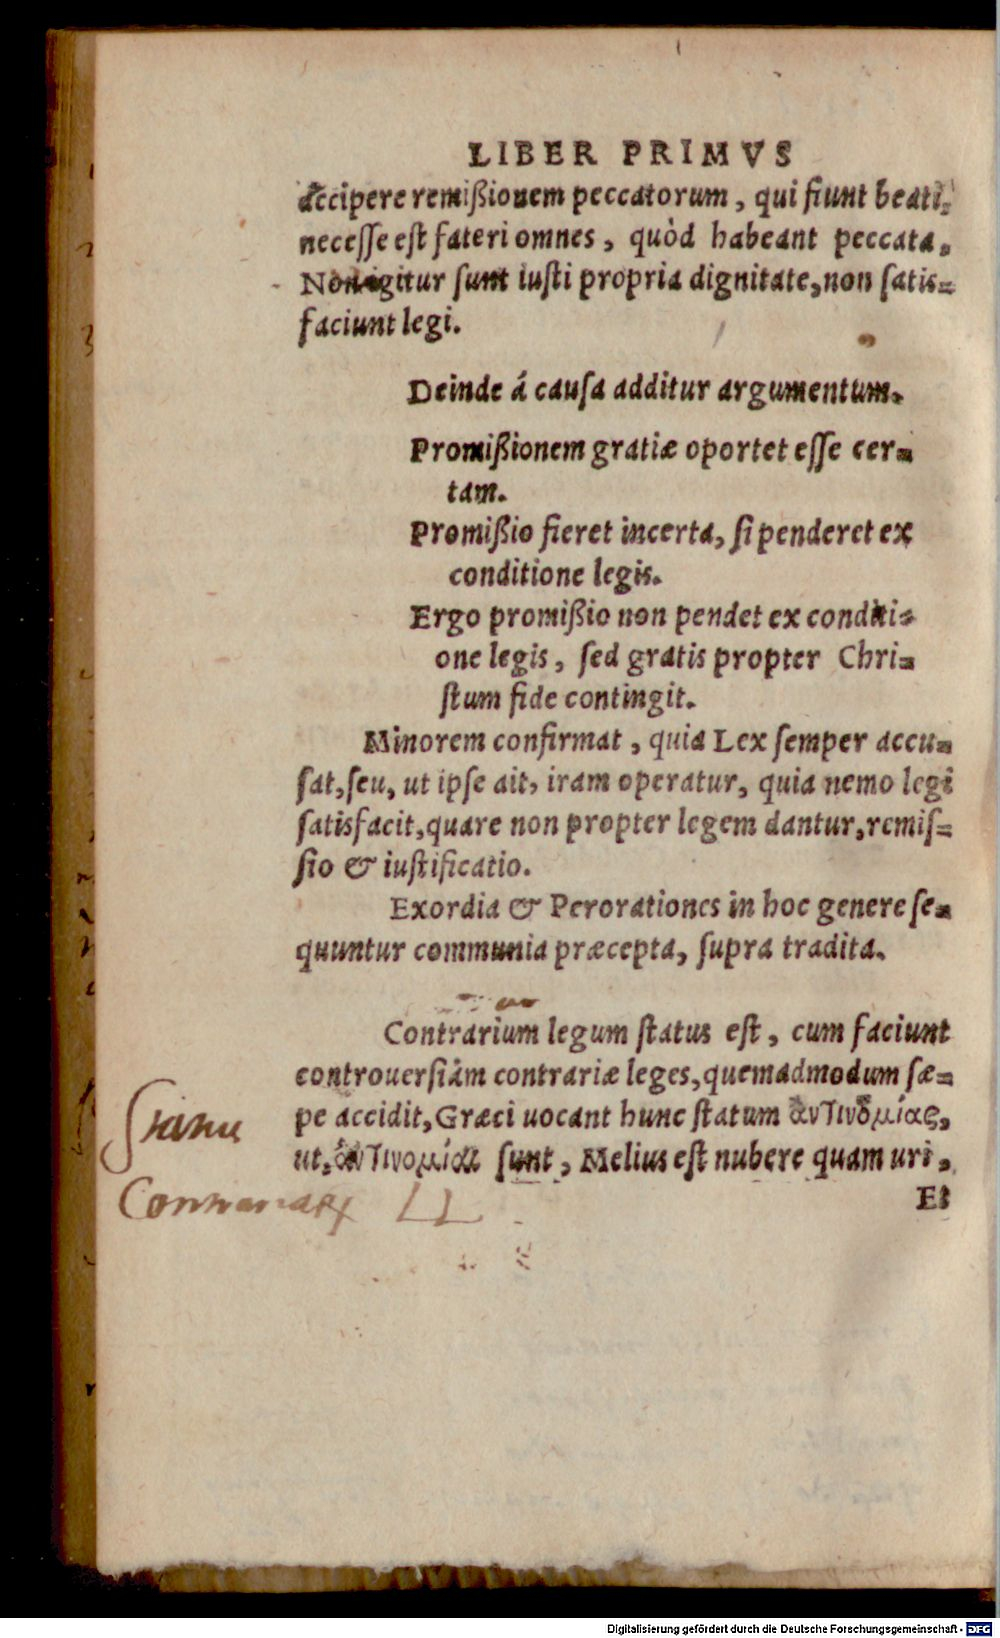 LIBER PRIMVS
accipere remißionem peccatorum, qui fiunt beati,
necesse est fateri omnes, quòd habeant peccata.
Non igitur sunt iusti propria dignitate, non satis=
faciunt legi.
Deinde á causa additur argumentum.
Promißionem gratiæ oportet esse cer=
tam.
Promißio fieret incerta, si penderet ex
conditione legis.
Ergo promißio non pendet ex conditi=
one legis, sed gratis propter Chri=
stum fide contingit.
Minorem confirmat, quia Lex semper accu=
sat, seu, ut ipse ait, iram operatur, quia nemo legi
satisfacit, quare non propter legem dantur, remis=
sio & iustificatio.
Exordia & Perorationes in hoc genere se=
quuntur communia præcepta, supra tradita.
Contrarium legum status est, cum faciunt
controuersiam contrariæ leges, quemadmodum sæ=
pe accidit, Græci uocant hunc statum ἀντινομίας,
ut, ἀντινομίαι sunt, Melius est nubere quam uri.
Et
Contrariarum LL
Digitalisierung gefördert durch die Deutsche Forschungsgemeinschaft - DFG